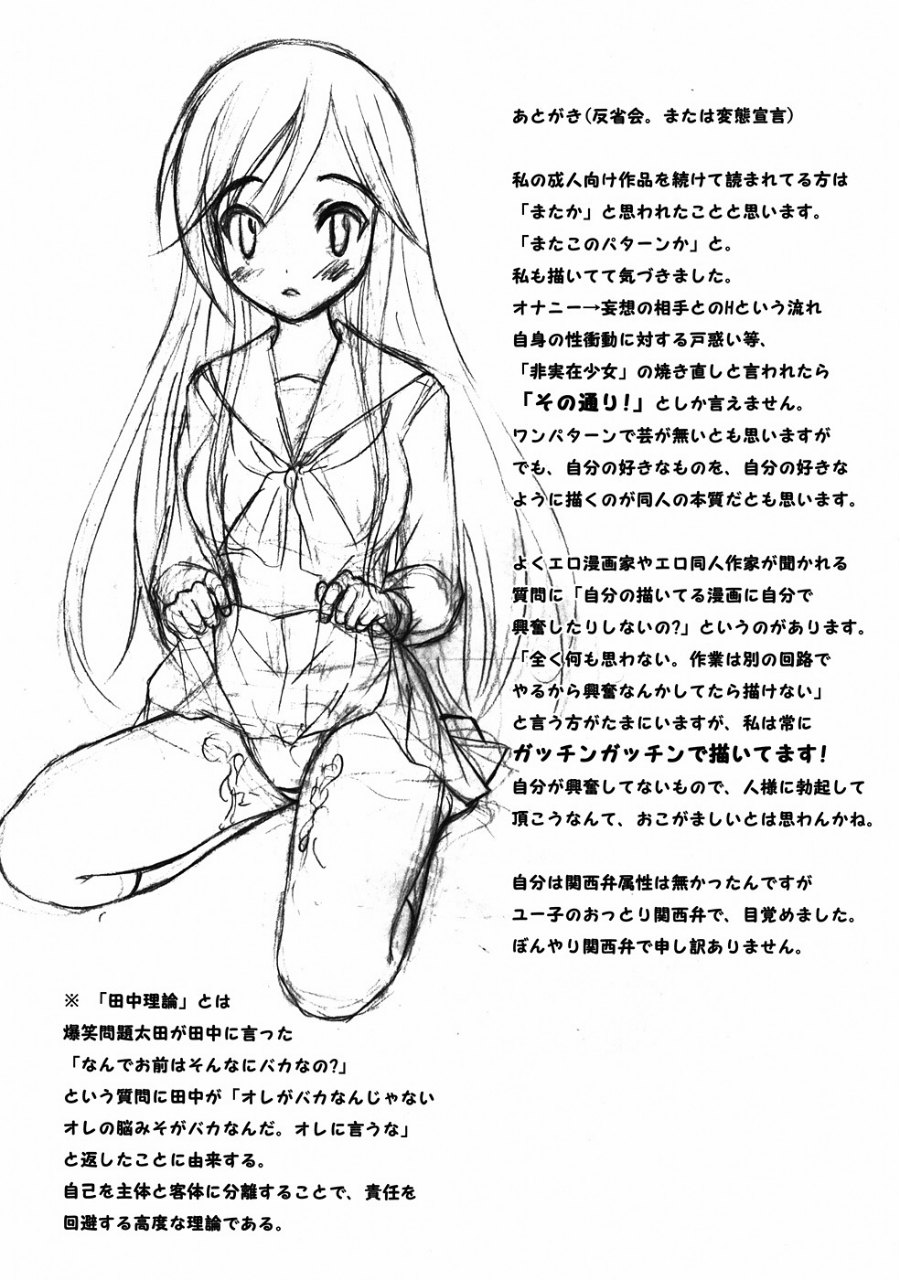 あとがき(反省会。または変態宣言)
私の成人向け作品を続けて読まれてる方は
「またか」と思われたことと思います。
「またこのパターンか」と。
私も描いてて気づきました。
オナニー→妄想の相手とのHという流れ
自身の性衝動に対する戸惑い等、
「非実在少女」の焼き直しと言われたら
「その通り!」としか言えません。
ワンパターンで芸が無いとも思いますが
でも、自分の好きなものを、自分の好きな
ように描くのが同人の本質だとも思います。
よくエロ漫画家やエロ同人作家が聞かれる
質問に「自分の描いてる漫画に自分で
興奮したりしないの?」というのがあります。
「全く何も思わない。作業は別の回路で
やるから興奮なんかしてたら描けない」
と言う方がたまにいますが、私は常に
ガッチンガッチンで描いてます!
自分が興奮してないもので、人様に勃起して
頂こうなんて、おこがましいとは思わんかね。
自分は関西弁属性は無かったんですが
ユー子のおっとり関西弁で、目覚めました。
ぼんやり関西弁で申し訳ありません。
※ 「田中理論」とは
爆笑問題太田が田中に言った
「なんでお前はそんなにバカなの?」
という質問に田中が「オレがバカなんじゃない
オレの脳みそがバカなんだ。オレに言うな」
と返したことに由来する。
自己を主体と客体に分離することで、責任を
回避する高度な理論である。